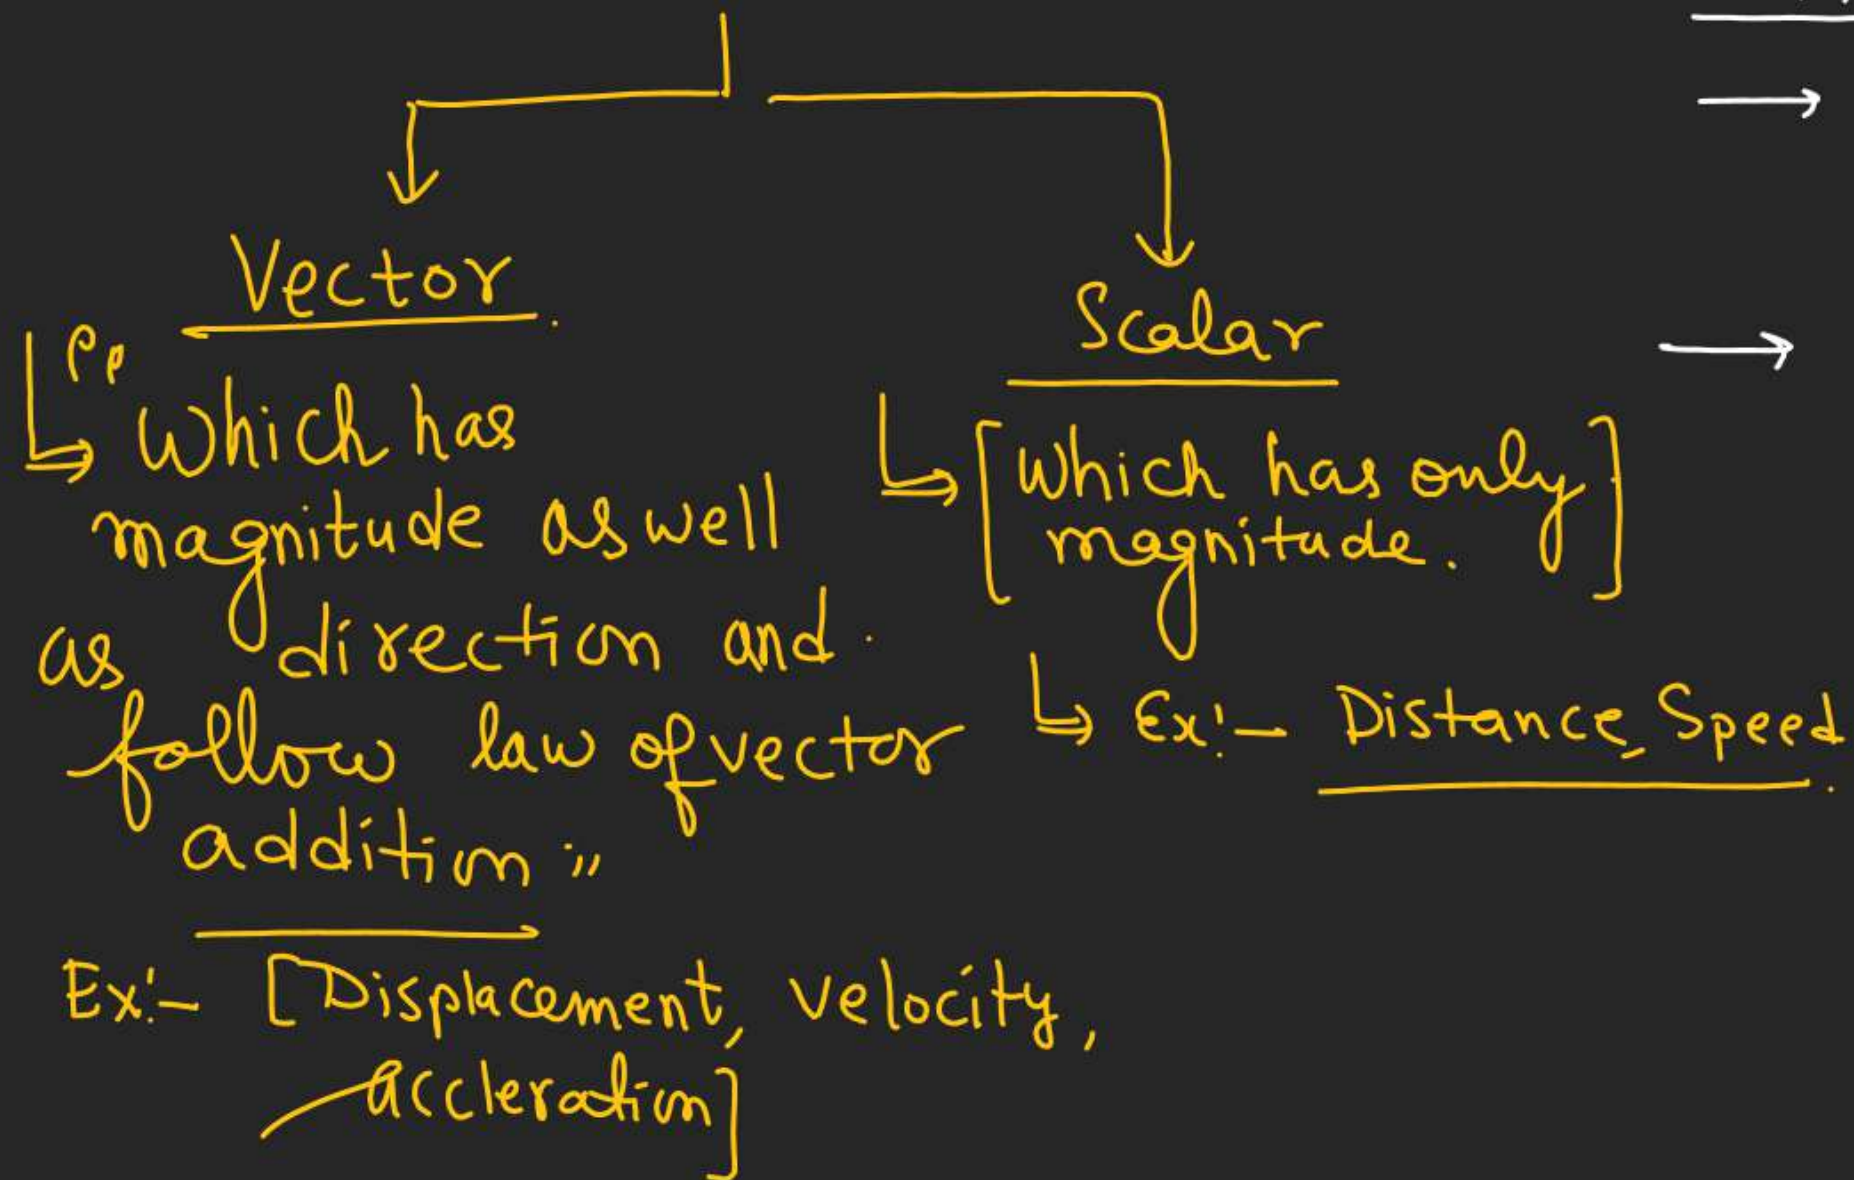 Vector.
"
Which has
magnitude as well
as direction and
follow law of vector
addition "
Ex:- [Displacement, velocity,
accleration]
Scalar
[Which has only
magnitude.]
Ex:- Distance, Speed.